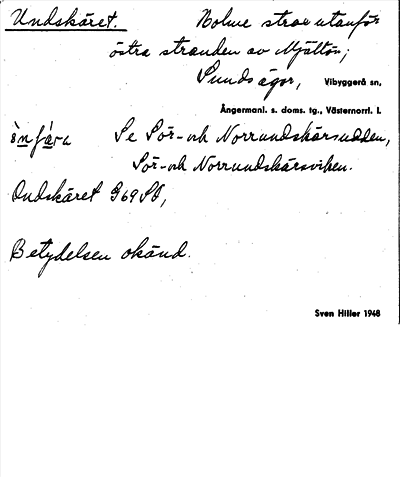 Undskäret. Holme strax utanför
östra stranden av Mjältön;
Sunds ägor, Vibyggerå sn,
Ångermanl. s. doms. tg., Västernorrl. l.
Se Sör- och Norrundskärsudden,
Sör- och Norrundskärsviken.
Ondskäret G69SO,
Betydelsen okänd.
Sven Hiller 1948